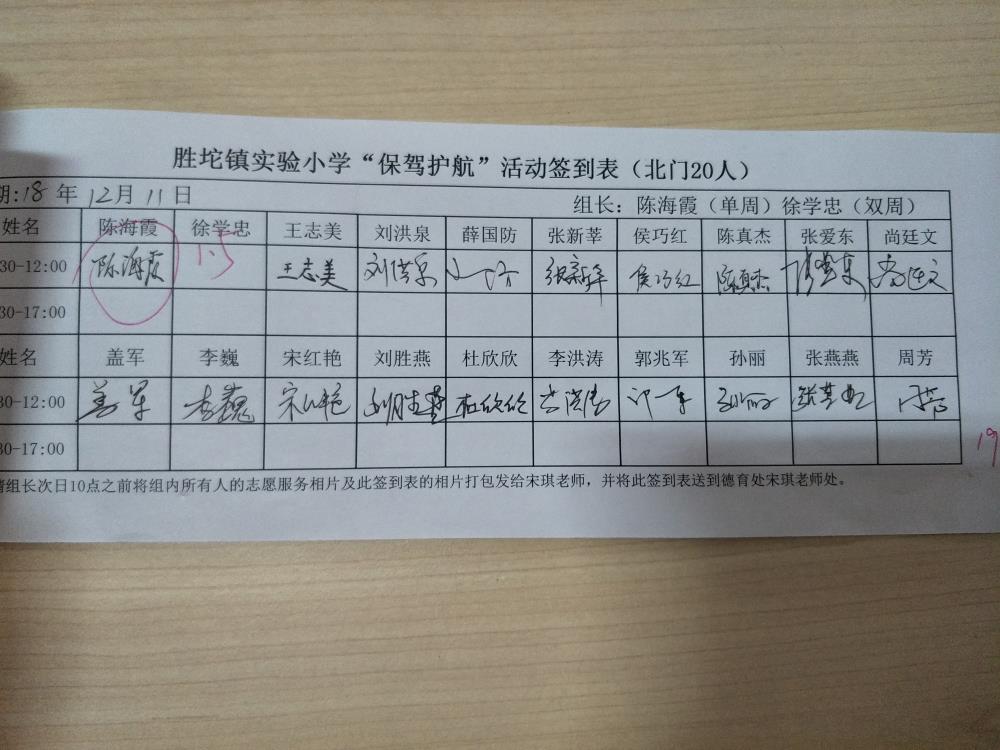 胜坨镇实验小学“保驾护航”活动签到表（北门20人）
期:18 年 12月 11 日 组长：陈海霞（单周）徐学忠（双周）
姓名 陈海霞 徐学忠 王志美 刘洪泉 薛国防 张新莘 侯巧红 陈真杰 张爱东 尚廷文
30-12:00 陈海霞 1.5 王志美 刘洪泉 张新莘 侯巧红 陈真杰 张爱东 尚廷文
30-17:00
姓名 盖军 李巍 宋红艳 刘胜燕 杜欣欣 李洪涛 郭兆军 孙丽 张燕燕 周芳
30-12:00 盖军 李巍 宋红艳 刘胜燕 杜欣欣 李洪涛 孙丽 张燕燕 周芳
30-17:00 19
请组长次日10点之前将组内所有人的志愿服务相片及此签到表的相片打包发给宋琪老师，并将此签到表送到德育处宋琪老师处。